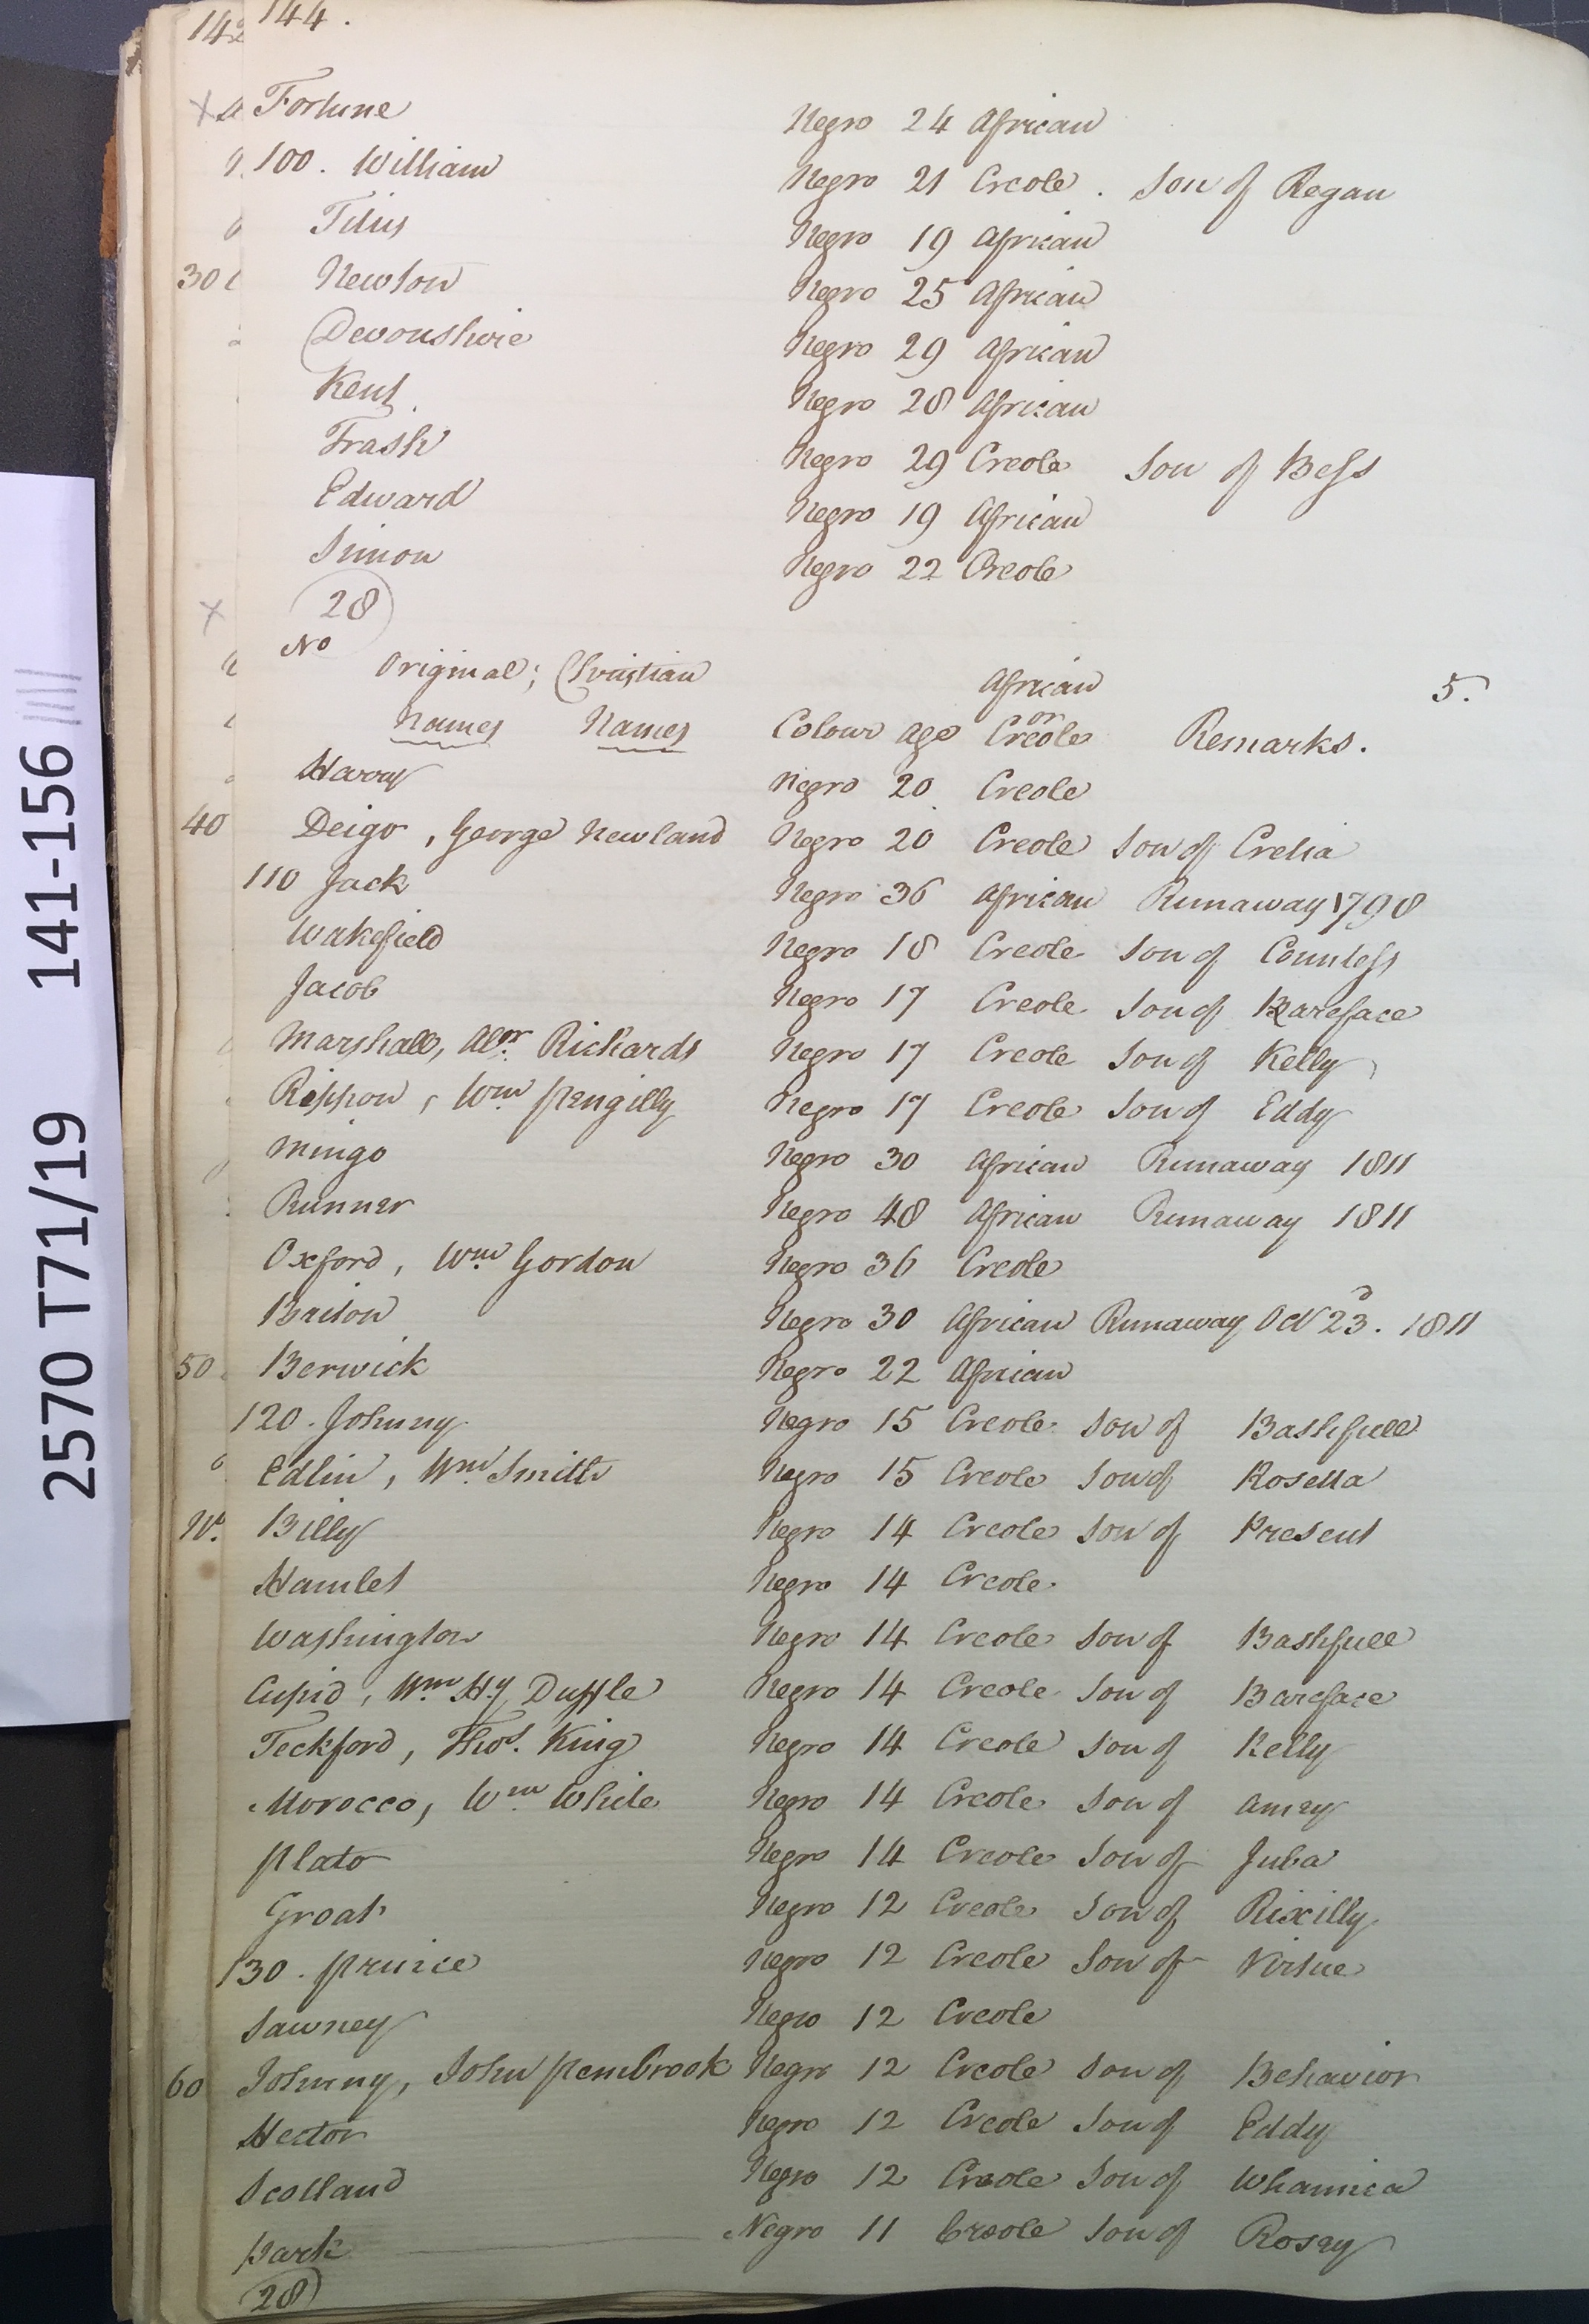 144.
Fortune Negro 24 African
100. William Negro 21 Creole. Son of Regan
Titus Negro 19 African
Newton Negro 25 African
Devonshire Negro 29 African
Kent Negro 28 African
Trash Negro 29 Creole Son of Bess
Edward Negro 19 African
Simon Negro 22 Creole
28
No
Original; Christian African 5.
Names Names Colour age or Creole Remarks.
Harry Negro 20 Creole
40 Deigo, George Newland Negro 20 Creole Son of Crelia
110 Jack Negro 36 African Runaway 1798
Wakefield Negro 18 Creole Son of Countess
Jacob Negro 17 Creole Son of Bareface
Marshall, Alxr. Richards Negro 17 Creole Son of Kelly
Rippon, Wm Pengilly Negro 17 Creole Son of Eddy
Mingo Negro 30 African Runaway 1811
Runner Negro 48 African Runaway 1811
Oxford, Wm Gordon Negro 36 Creole
Briton Negro 30 African Runaway Oct 23. 1811
50 Berwick Negro 22 African
120. Johnny Negro 15 Creole Son of Bashfull
Edlin, Wm Smith Negro 15 Creole Son of Rosetta
No. Billy Negro 14 Creole Son of Present
Hamlet Negro 14 Creole
Washington Negro 14 Creole Son of Bashfull
Cupid, Wm Hy Duffle Negro 14 Creole Son of Bareface
Teckford, Thos. King Negro 14 Creole Son of Kelly
Morocco, Wm White Negro 14 Creole Son of Amey
Plato Negro 14 Creole Son of Juba
Groat Negro 12 Creole Son of Rixilly
130. Prince Negro 12 Creole Son of Virtue
Sawney Negro 12 Creole
60 Johnny, John Pembrook Negro 12 Creole Son of Behavior
Hector Negro 12 Creole Son of Eddy
Scotland Negro 12 Creole Son of Whannica
Park Negro 11 Creole Son of Rosey
28
2570 T71/19 141-156